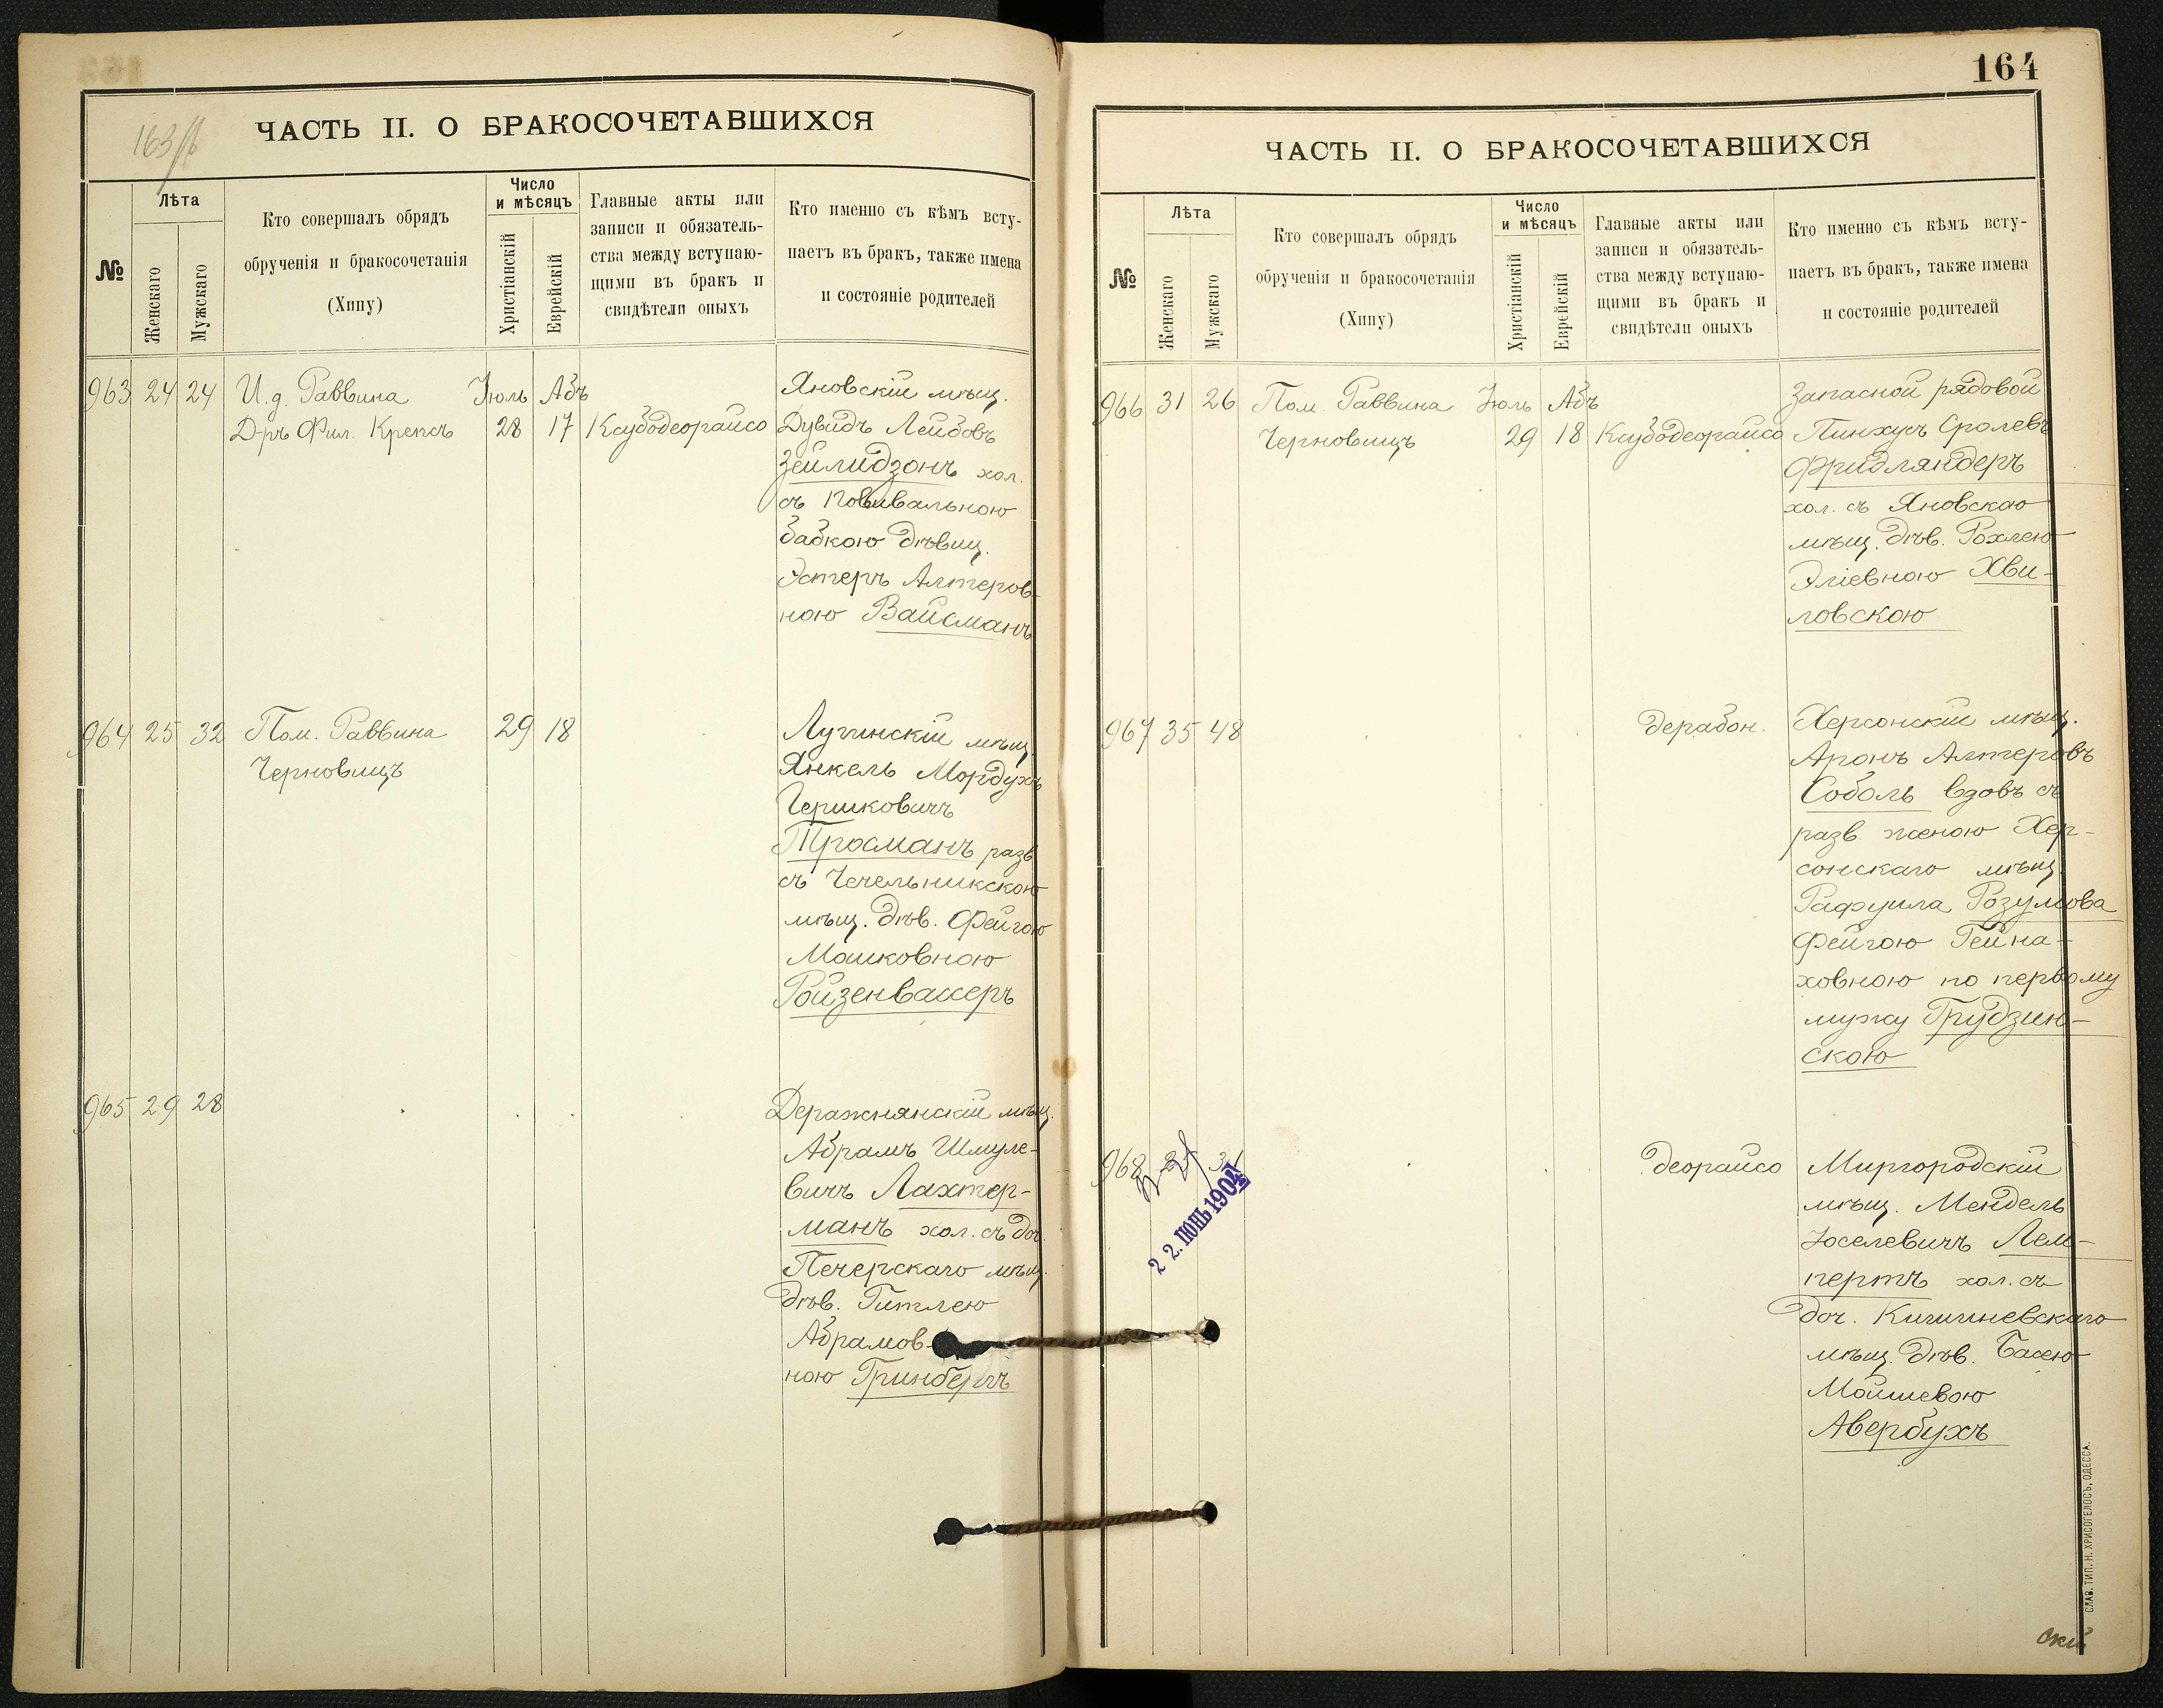 ЧАСТЬ II. О БРАКОСОЧЕТАВШИХСЯ
№
Лѣта
Женскаго
Мужскаго
Кто совершалъ обрядъ
обрученія и бракосочетанія
(Хипу)
Число
и мѣсяцъ
Христіанскій
Еврейскій
Главные акты или
записи и обязатель-
ства между вступаю-
щими въ бракъ и
свидѣтели оныхъ
Кто именно съ кѣмъ всту-
паетъ въ бракъ, также имена
и состояніе родителей
963 24 24 И.д. Раввина Іюль Абъ Яновскій мѣщ.
Д-ръ Фил. Крепсъ 28 17 Ксубодеорайсо Дувидъ Лейбовъ
Зейлидзонъ хол.
съ повивальною
бабкою дѣвиц.
Эстеръ Алтеров-
ною Вайсманъ
964 25 32 Пом. Раввина 29 18 Лугинскій мѣщ.
Черновицъ Янкель Мордухъ
Гершковичъ
Тросманъ разв.
съ Чечельникскою
мѣщ. дѣв. Фейгою
Мошковною
Ройзенвассеръ
965 29 28 Деражнянскій мѣщ.
Абрамъ Шмуле-
вичъ Лахтер-
манъ хол. съ доч.
Печерскаго мѣщ.
дѣв. Гитлею
Абрамов-
ною Гринбергъ
164
ЧАСТЬ II. О БРАКОСОЧЕТАВШИХСЯ
№
Лѣта
Женскаго
Мужскаго
Кто совершалъ обрядъ
обрученія и бракосочетанія
(Хипу)
Число
и мѣсяцъ
Христіанскій
Еврейскій
Главные акты или
записи и обязатель-
ства между вступаю-
щими въ бракъ и
свидѣтели оныхъ
Кто именно съ кѣмъ всту-
паетъ въ бракъ, также имена
и состояніе родителей
966 31 26 Пом. Раввина Іюль Абъ Запасной рядовой
Черновицъ 29 18 Ксубодеорайсо Пинхусъ Сролевъ
Фридляндеръ
хол. съ Яновскою
мѣщ. дѣв. Рохлею
Эліевною Хви-
ловскою
967 35 48 дерабон. Херсонскій мѣщ.
Аронъ Алтеровъ
Соболь вдовъ съ
разв. женою Хер-
сонскаго мѣщ.
Рафуила Розумова
Фейгою Гейна-
ховною по первому
мужу Грудзин-
скою
968 деорайсо Миргородскій
мѣщ. Мендель
Іоселевичъ Лем-
пертъ хол. съ
доч. Кишиневскаго
мѣщ. дѣв. Басею
Мойшевою
Авербухъ
22. ІЮНЬ 1904
СЛАВ. ТИП. Н. ХРИСОГЕЛОСЪ, ОДЕССА.